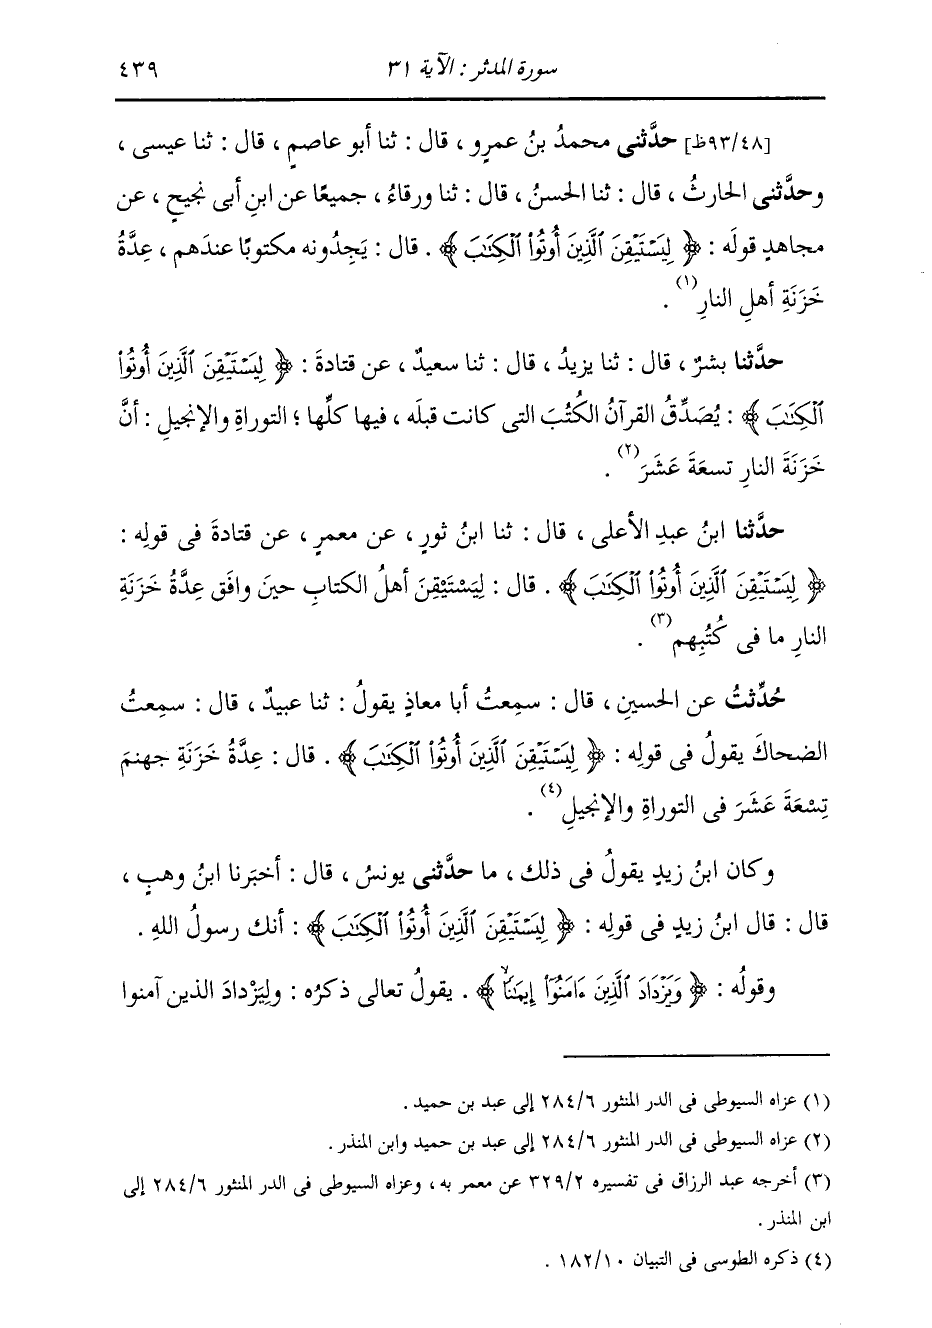 سورة المدثر : الآية ٣١ ٤٣٩
[٩٣/٤٨ظ] حدَّثنى محمدُ بنُ عمرٍو ، قال : ثنا أبو عاصمٍ ، قال : ثنا عيسى ،
وحدَّثنى الحارثُ ، قال : ثنا الحسنُ ، قال : ثنا ورقاءُ ، جميعًا عن ابنِ أبى نجيحٍ ، عن
مجاهدٍ قولَه : ﴿ لِيَسْتَيْقِنَ ٱلَّذِينَ أُوتُواْ ٱلْكِتَٰبَ ﴾ . قال : يَجِدُونه مكتوبًا عندَهم ، عِدَّةُ
خَزَنَةِ أهلِ النارِ(١) .
حدَّثنا بشرٌ ، قال : ثنا يزيدُ ، قال : ثنا سعيدٌ ، عن قتادةَ : ﴿ لِيَسْتَيْقِنَ ٱلَّذِينَ أُوتُواْ
ٱلْكِتَٰبَ ﴾ : يُصَدِّقُ القرآنُ الكُتُبَ التى كانت قبلَه ، فيها كلِّها ؛ التوراةِ والإنجيلِ : أنَّ
خَزَنَةَ النارِ تسعةَ عَشَرَ(٢) .
حدَّثنا ابنُ عبدِ الأعلى ، قال : ثنا ابنُ ثورٍ ، عن معمرٍ ، عن قتادةَ فى قولِه :
﴿ لِيَسْتَيْقِنَ ٱلَّذِينَ أُوتُواْ ٱلْكِتَٰبَ ﴾ . قال : لِيَسْتَيْقِنَ أهلُ الكتابِ حينَ وافَق عِدَّةُ خَزَنَةِ
النارِ ما فى كُتُبِهم(٣) .
حُدِّثتُ عن الحسينِ ، قال : سمِعتُ أبا معاذٍ يقولُ : ثنا عبيدٌ ، قال : سمِعتُ
الضحاكَ يقولُ فى قولِه : ﴿ لِيَسْتَيْقِنَ ٱلَّذِينَ أُوتُواْ ٱلْكِتَٰبَ ﴾ . قال : عِدَّةُ خَزَنَةِ جهنمَ
تِسْعَةَ عَشَرَ فى التوراةِ والإنجيلِ(٤) .
وكان ابنُ زيدٍ يقولُ فى ذلك ، ما حدَّثنى يونسُ ، قال : أخبَرنا ابنُ وهبٍ ،
قال : قال ابنُ زيدٍ فى قولِه : ﴿ لِيَسْتَيْقِنَ ٱلَّذِينَ أُوتُواْ ٱلْكِتَٰبَ ﴾ : أنك رسولُ اللهِ .
وقولُه : ﴿ وَيَزْدَادَ ٱلَّذِينَ ءَامَنُوٓاْ إِيمَٰنًا ۙ ﴾ . يقولُ تعالى ذكرُه : ولِيَزْدادَ الذين آمنوا
(١) عزاه السيوطى فى الدر المنثور ٢٨٤/٦ إلى عبد بن حميد .
(٢) عزاه السيوطى فى الدر المنثور ٢٨٤/٦ إلى عبد بن حميد وابن المنذر .
(٣) أخرجه عبد الرزاق فى تفسيره ٣٢٩/٢ عن معمر به ، وعزاه السيوطى فى الدر المنثور ٢٨٤/٦ إلى
ابن المنذر .
(٤) ذكره الطوسى فى التبيان ١٨٢/١٠ .